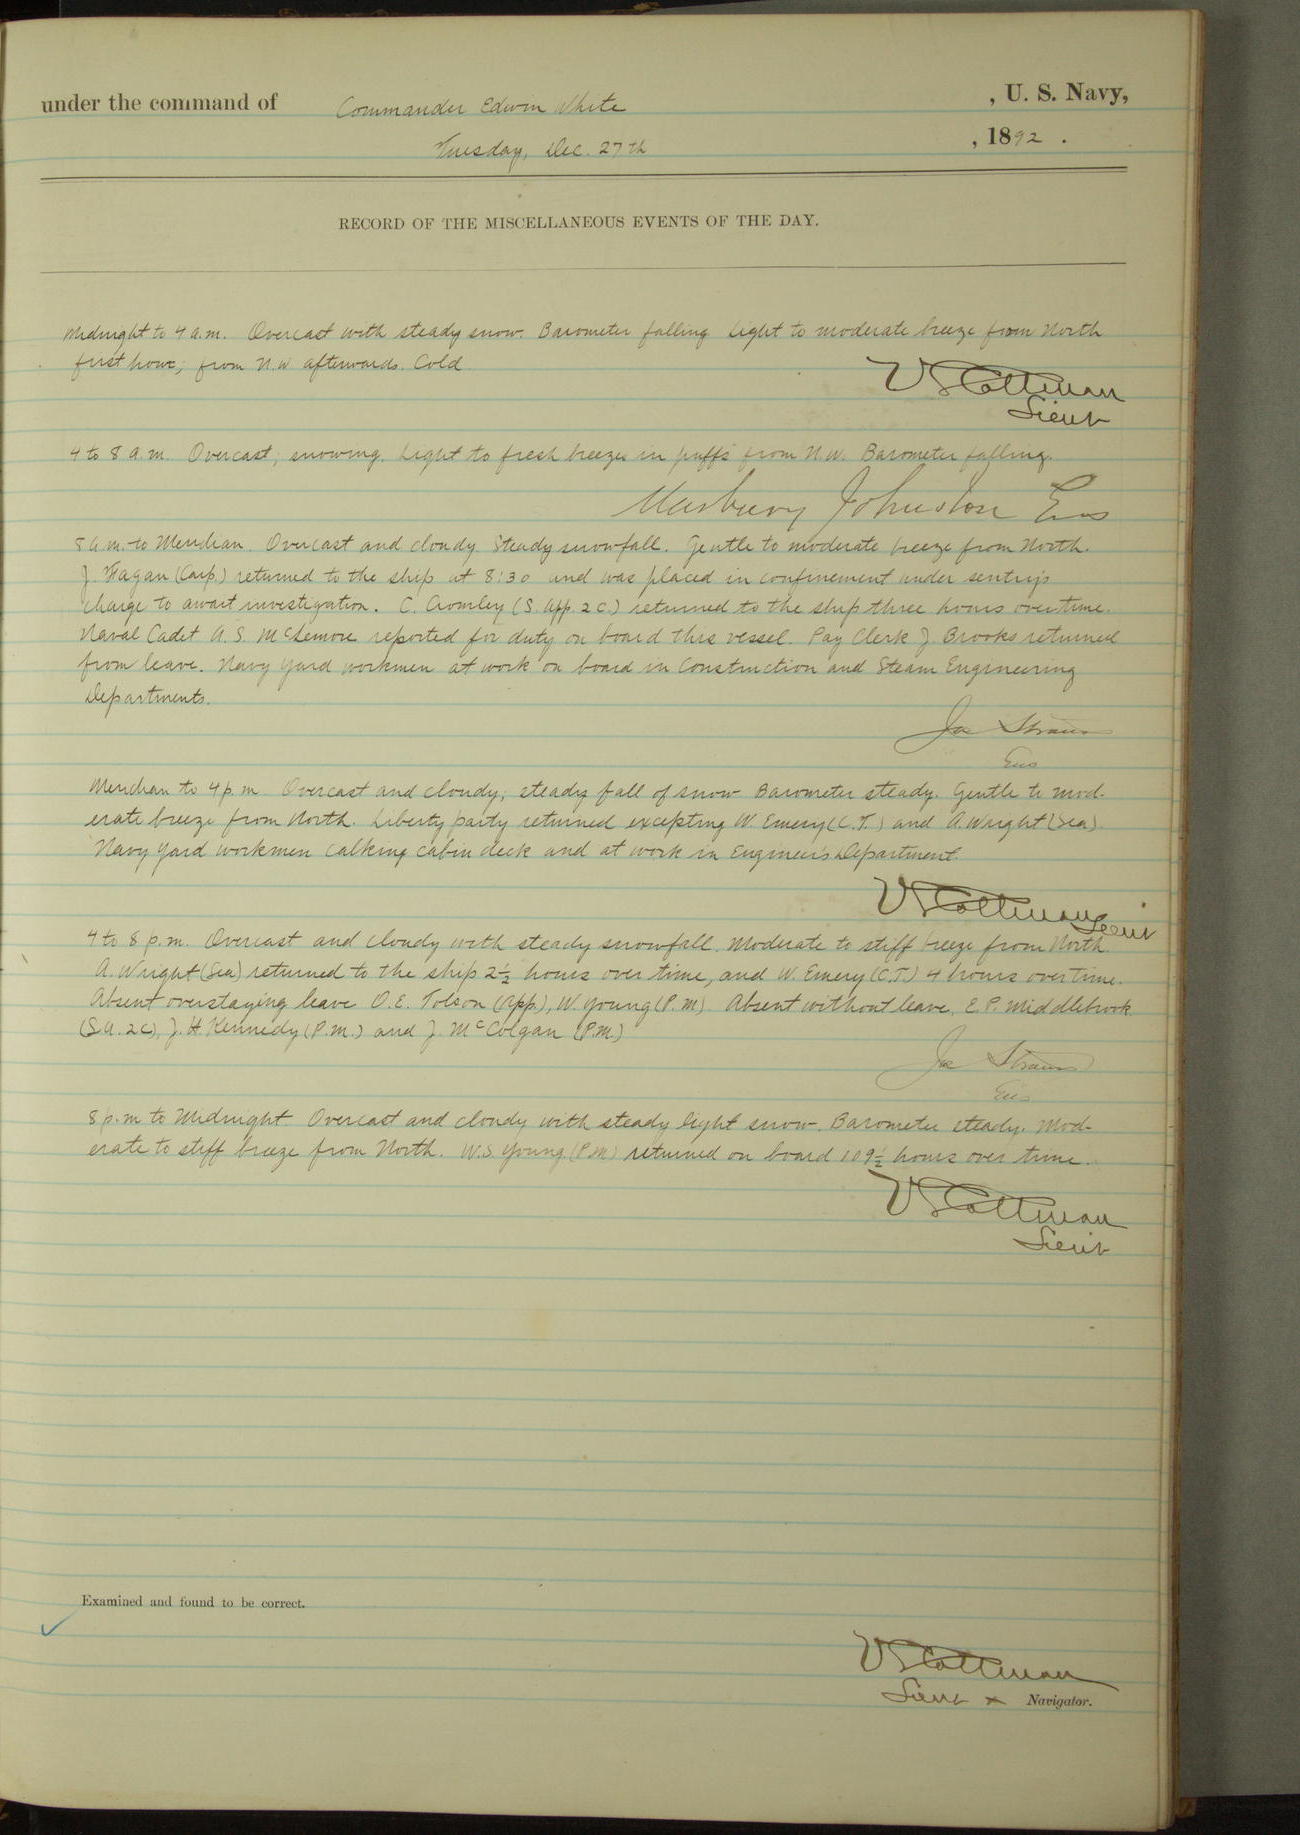 under the command of Commander Edwin White , U. S. Navy,
Tuesday, Dec. 27th , 1892 .
RECORD OF THE MISCELLANEOUS EVENTS OF THE DAY.
Midnight to 4 a.m. Overcast with steady snow. Barometer falling Light to moderate breeze from North
first hour; from N.W afterwards. Cold
V S Cottman
Lieut
4 to 8 a.m. Overcast; snowing. Light to fresh breeze in puffs from N.W. Barometer falling.
Marbury Johnston Ens
8 a.m. to Meridian. Overcast and cloudy. Steady snowfall. Gentle to moderate breeze from North.
J. Fagan (Carp.) returned to the ship at 8:30 and was placed in confinement under sentry's
charge to await investigation. C. Cromley (S. App. 2c.) returned to the ship three hours overtime.
Naval Cadet A. S. McLemore reported for duty on board this vessel. Pay Clerk J. Brooks returned
from leave. Navy Yard workmen at work on board in Construction and Steam Engineering
Departments.
Jos Strauss
Ens
Meridian to 4 p.m. Overcast and cloudy; steady fall of snow Barometer steady. Gentle to mod-
erate breeze from North. Liberty party returned excepting W. Emery (C.T.) and A. Wright (Sea).
Navy Yard workmen calking cabin deck and at work in Engineer's Department.
V S Cottman Lieut
4 to 8 p.m. Overcast and cloudy with steady snowfall. Moderate to stiff breeze from North.
A. Wright (Sea) returned to the ship 2½ hours over time, and W. Emery (C.T.) 4 hours overtime.
Absent overstaying leave O.E. Tolson (App), W. Young (P.M). Absent without leave, E.P. Middlebrook
(S.A. 2c), J. H. Kennedy (P.M.) and J. McColgan (P.M.)
Jos Strauss
Ens
8 p.m to Midnight. Overcast and cloudy with steady light snow. Barometer steady. Mod-
erate to stiff breeze from North. W.S. Young (P.M) returned on board 109½ hours over time.
V S Cottman
Lieut
Examined and found to be correct.
V S Cottman
Lieut & Navigator.